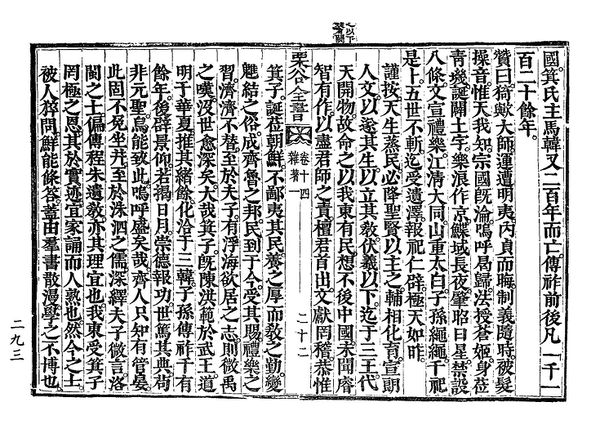 國箕氏主馬韓又二百年而亡傳祚前後凡一千一
百二十餘年
贊曰猗歟大師運遭明夷内貞而晦制義隨時被髮
操音惟天我知宗國既淪嗚呼曷歸法授蒼姬身莅
靑㡬誕闢土宇樂浪作京鰈域長夜肇昭日星禁設
八條文宣禮樂江清大同山重太白子孫繩繩千祀
是卜五世不斬迄受遺澤報祀仁辟極天如昨
謹按天生蒸民必降聖賢以主之輔相化育宣朗
人文以遂其生以立其教伏羲以下迄于三王代
天開物故命之以我東有民想不後中國未聞睿
智有作以盡君師之責檀君首出文獻罔稽恭惟
栗谷全書
卷十四
雜著
二十二
箕子誕莅朝鮮不鄙夷其民養之厚而敎之勤變
魋結之俗成齊魯之邦民到于今受其賜禮樂之
習濟濟不替至於夫子有浮海欲居之志則微禹
之嘆沒世愈深矣大哉箕子既陳洪範於武王道
明于華夏推其緒餘化洽于三韓子孫傳祚千有
餘年後辟景仰若揭日月崇德報功世篤其典苟
非元聖烏能致此嗚呼盛矣哉齊人只知有管晏
此固不免坐井至於洙泗之儒深繹夫子微言洛
閩之士偏傳程朱遺敎亦其理宜也我東受箕子
罔極之恩其於實迹宜家誦而人熟也然今之士
被人猝問鮮能條答蓋由羣書散漫學之不博也
二九三